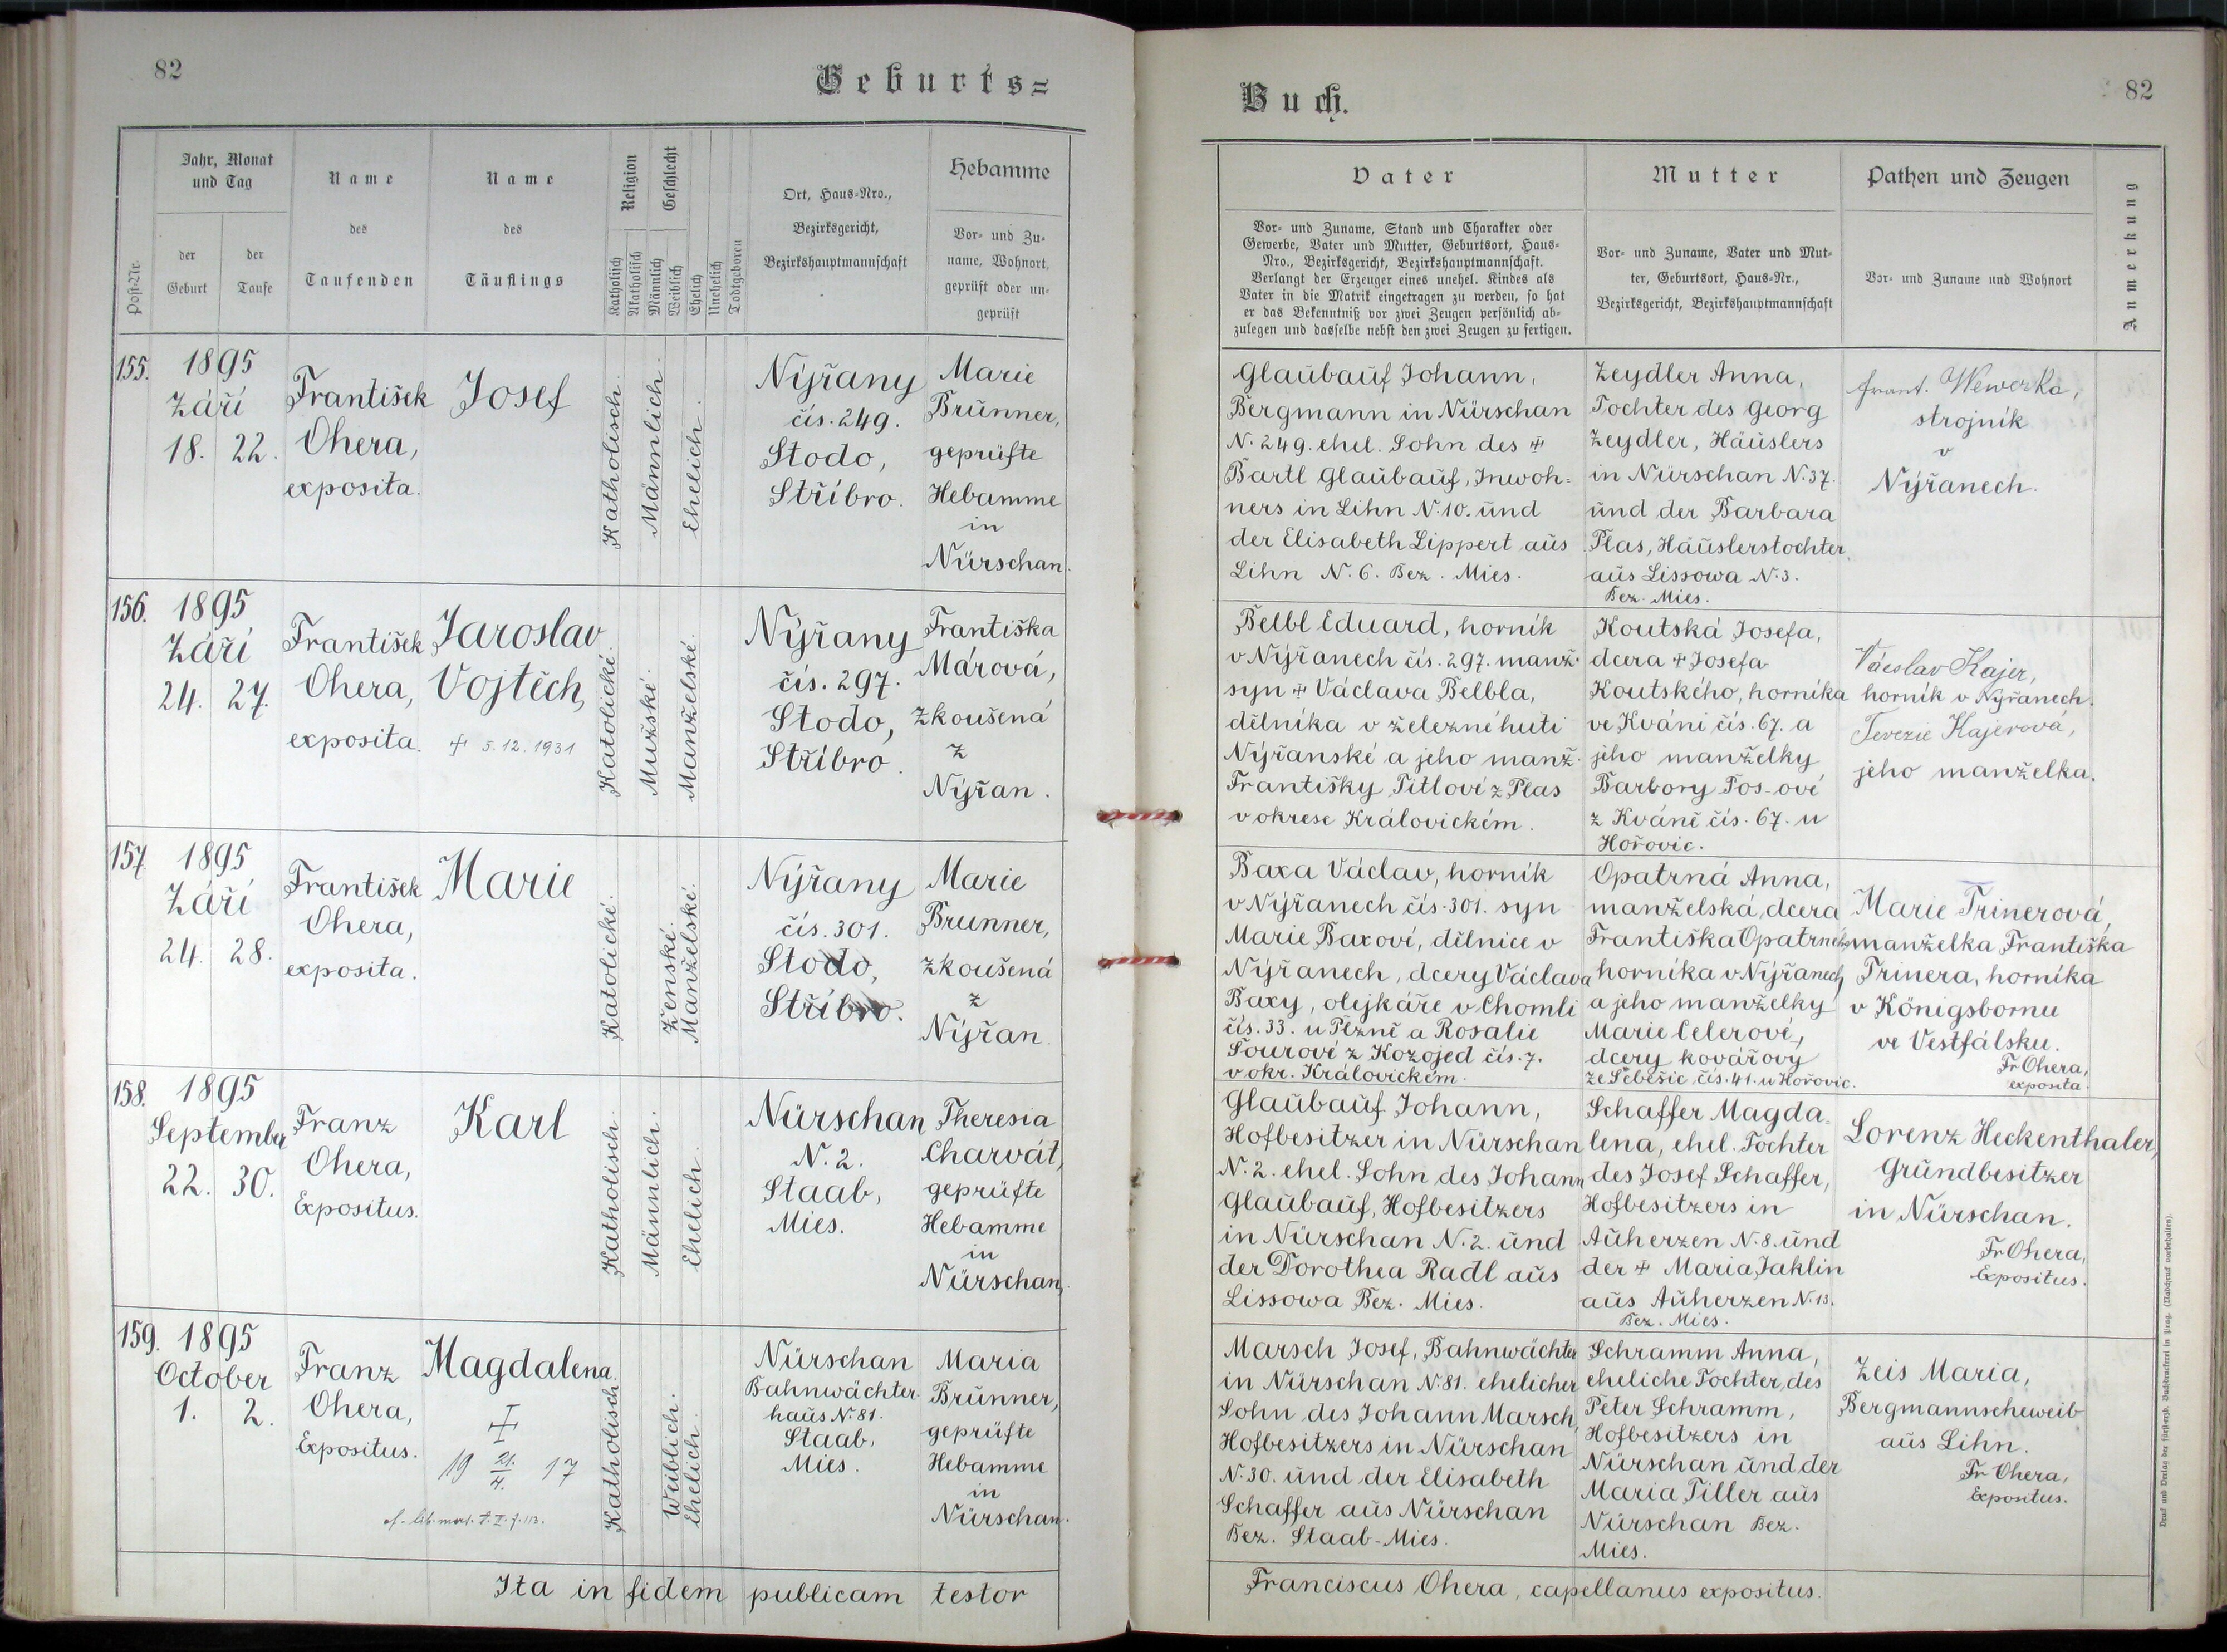 82
Geburts=
Jahr, Monat
und Tag
der
Geburt
der
Taufe
Name
des
Taufenden
Name
des
Täuflings
Religion
Geschlecht
Katholisch
Akatholisch
Männlich
Weiblich
Ehelich
Unehelich
Todtgeboren
Post-Nr.
Ort, Haus=Nro.,
Bezirksgericht,
Bezirkshauptmannschaft
Hebamme
Vor= und Zu=
name, Wohnort,
geprüft oder un=
geprüft
155.
1895
Září
18. 22.
František
Ohera,
exposita.
Josef
Katholisch.
Männlich.
Ehelich.
Nýřany
čís. 249.
Stodo,
Stříbro.
Marie
Brunner,
geprüfte
Hebamme
in
Nürschan.
156.
1895
Září
24. 27.
František
Ohera,
exposita.
Jaroslav
Vojtěch,
+ 5.12.1931
Katolické.
Mužské.
Manželské.
Nýřany
čís. 297.
Stodo,
Stříbro.
Františka
Márová,
zkoušená
z
Nýřan.
157.
1895
Září
24. 28.
František
Ohera,
exposita.
Marie
Katolické.
Ženské.
Manželské.
Nýřany
čís. 301.
Stodo,
Stříbro.
Marie
Brunner,
zkoušená
z
Nýřan.
158.
1895
September
22. 30.
Franz
Ohera,
Expositus.
Karl
Katholisch.
Männlich.
Ehelich.
Nürschan
N. 2.
Staab,
Mies.
Theresia
Charvát,
geprüfte
Hebamme
in
Nürschan.
159.
1895
October
1. 2.
Franz
Ohera,
Expositus.
Magdalena.
+
19 21./4. 17
cf. lib. mort. t. II. f. 113.
Katholisch
Weiblich.
Ehelich.
Nürschan
Bahnwächter-
haus N. 81.
Staab,
Mies.
Maria
Brunner,
geprüfte
Hebamme
in
Nürschan.
Ita in fidem publicam testor
82
Buch.
Vater
Vor= und Zuname, Stand und Charakter oder
Gewerbe, Vater und Mutter, Geburtsort, Haus=
Nro., Bezirksgericht, Bezirkshauptmannschaft.
Verlangt der Erzeuger eines unehel. Kindes als
Vater in die Matrik eingetragen zu werden, so hat
er das Bekenntniß vor zwei Zeugen persönlich ab=
zulegen und dasselbe nebst den zwei Zeugen zu fertigen.
Mutter
Vor= und Zuname, Vater und Mut=
ter, Geburtsort, Haus=Nr.,
Bezirksgericht, Bezirkshauptmannschaft
Pathen und Zeugen
Vor= und Zuname und Wohnort
Anmerkung
Glaubauf Johann,
Bergmann in Nürschan
N. 249. ehel. Sohn des +
Bartl Glaubauf, Inwoh=
ners in Lihn N. 10. und
der Elisabeth Lippert aus
Lihn N. 6. Bez. Mies.
Zeydler Anna,
Tochter des Georg
Zeydler, Häuslers
in Nürschan N. 37.
und der Barbara
Plas, Häuslerstochter
aus Lissowa N. 3.
Bez. Mies.
Frant. Wewerka,
strojník
v
Nýřanech.
Belbl Eduard, horník
v Nýřanech čís. 297. manž.
syn + Václava Belbla,
dělníka v železné huti
Nýřanské a jeho manž.
Františky Titlové z Plas
v okrese Královickém.
Koutská Josefa,
dcera + Josefa
Koutského, horníka
ve Kváni čís. 67. a
jeho manželky
Barbory Fos-ové
z Kváně čís. 67. u
Hořovic.
Václav Kajer,
horník v Nýřanech.
Terezie Kajerová,
jeho manželka.
Baxa Václav, horník
v Nýřanech čís. 301. syn
Marie Baxové, dělnice v
Nýřanech, dcery Václava
Baxy, olejkáře v Chomli
čís. 33. u Plzně a Rosalie
Sourové z Kozojed čís. 7.
v okr. Královickém.
Opatrná Anna,
manželská dcera
Františka Opatrného
horníka v Nýřanech
a jeho manželky
Marie Celerové,
dcery kovářovy
ze Sebešic čís. 41. u Hořovic.
Marie Trinerová,
manželka Františka
Trinera, horníka
v Königsbornu
ve Vestfálsku.
Fr Ohera,
exposita.
Glaubauf Johann,
Hofbesitzer in Nürschan
N. 2. ehel. Sohn des Johann
Glaubauf, Hofbesitzers
in Nürschan N. 2. und
der Dorothea Radl aus
Lissowa Bez. Mies.
Schaffer Magda-
lena, ehel. Tochter
des Josef Schaffer,
Hofbesitzers in
Auherzen N. 8. und
der + Maria Jaklin
aus Auherzen N. 13.
Bez. Mies.
Lorenz Heckenthaler,
Grundbesitzer
in Nürschan.
Fr Ohera,
Expositus.
Marsch Josef, Bahnwächter
in Nürschan N. 81. ehelicher
Sohn des Johann Marsch,
Hofbesitzers in Nürschan
N. 30. und der Elisabeth
Schaffer aus Nürschan
Bez. Staab-Mies.
Schramm Anna,
eheliche Tochter, des
Peter Schramm,
Hofbesitzers in
Nürschan und der
Maria Tiller aus
Nürschan Bez.
Mies.
Zeis Maria,
Bergmannscheweib
aus Lihn.
Fr Ohera,
Expositus.
Franciscus Ohera, capellanus expositus.
Druck und Verlag der fürsterzb. Buchdruckerei in Prag. (Nachdruck vorbehalten).